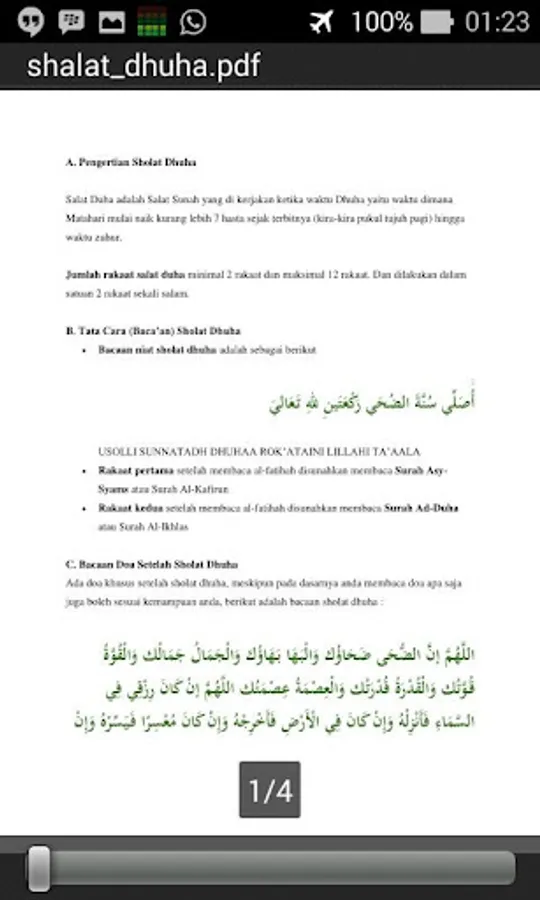 100% 01:23
shalat_dhuha.pdf
A. Pengertian Sholat Dhuha
Salat Duha adalah Salat Sunah yang di kerjakan ketika waktu Dhuha yaitu waktu dimana
Matahari mulai naik kurang lebih 7 hasta sejak terbitnya (kira-kira pukul tujuh pagi) hingga
waktu zuhur.
Jumlah rakaat salat duha minimal 2 rakaat dan maksimal 12 rakaat. Dan dilakukan dalam
satuan 2 rakaat sekali salam.
B. Tata Cara (Baca'an) Sholat Dhuha
• Bacaan niat sholat dhuha adalah sebagai berikut
أُصَلِّي سُنَّةَ الضُّحَى رَكْعَتَيْنِ لِلّٰهِ تَعَالَيَ
USOLLI SUNNATADH DHUHAA ROK'ATAINI LILLAHI TA'AALA
• Rakaat pertama setelah membaca al-fatihah disunahkan membaca Surah Asy-
Syams atau Surah Al-Kafirun
• Rakaat kedua setelah membaca al-fatihah disunahkan membaca Surah Ad-Duha
atau Surah Al-Ikhlas
C. Bacaan Doa Setelah Sholat Dhuha
Ada doa khusus setelah sholat dhuha, meskipun pada dasarnya anda membaca doa apa saja
juga boleh sesuai kemampuan anda, berikut adalah bacaan sholat dhuha :
اللَّهُمَّ إِنَّ الضُّحَى ضَحَاؤُك وَالْبَهَا بَهَاؤُك وَالْجَمَالُ جَمَالُك وَالْقُوَّةُ
قُوَّتُك وَالْقُدْرَةُ قُدْرَتُك وَالْعِصْمَةُ عِصْمَتُك اللَّهُمَّ إِنْ كَانَ رِزْقِي فِي
السَّمَاءِ فَأَنْزِلْهُ وَإِنْ كَانَ فِي الْأَرْضِ فَأَخْرِجْهُ وَإِنْ كَانَ مُعْسِرًا فَيَسِّرْهُ وَإِنْ
1/4